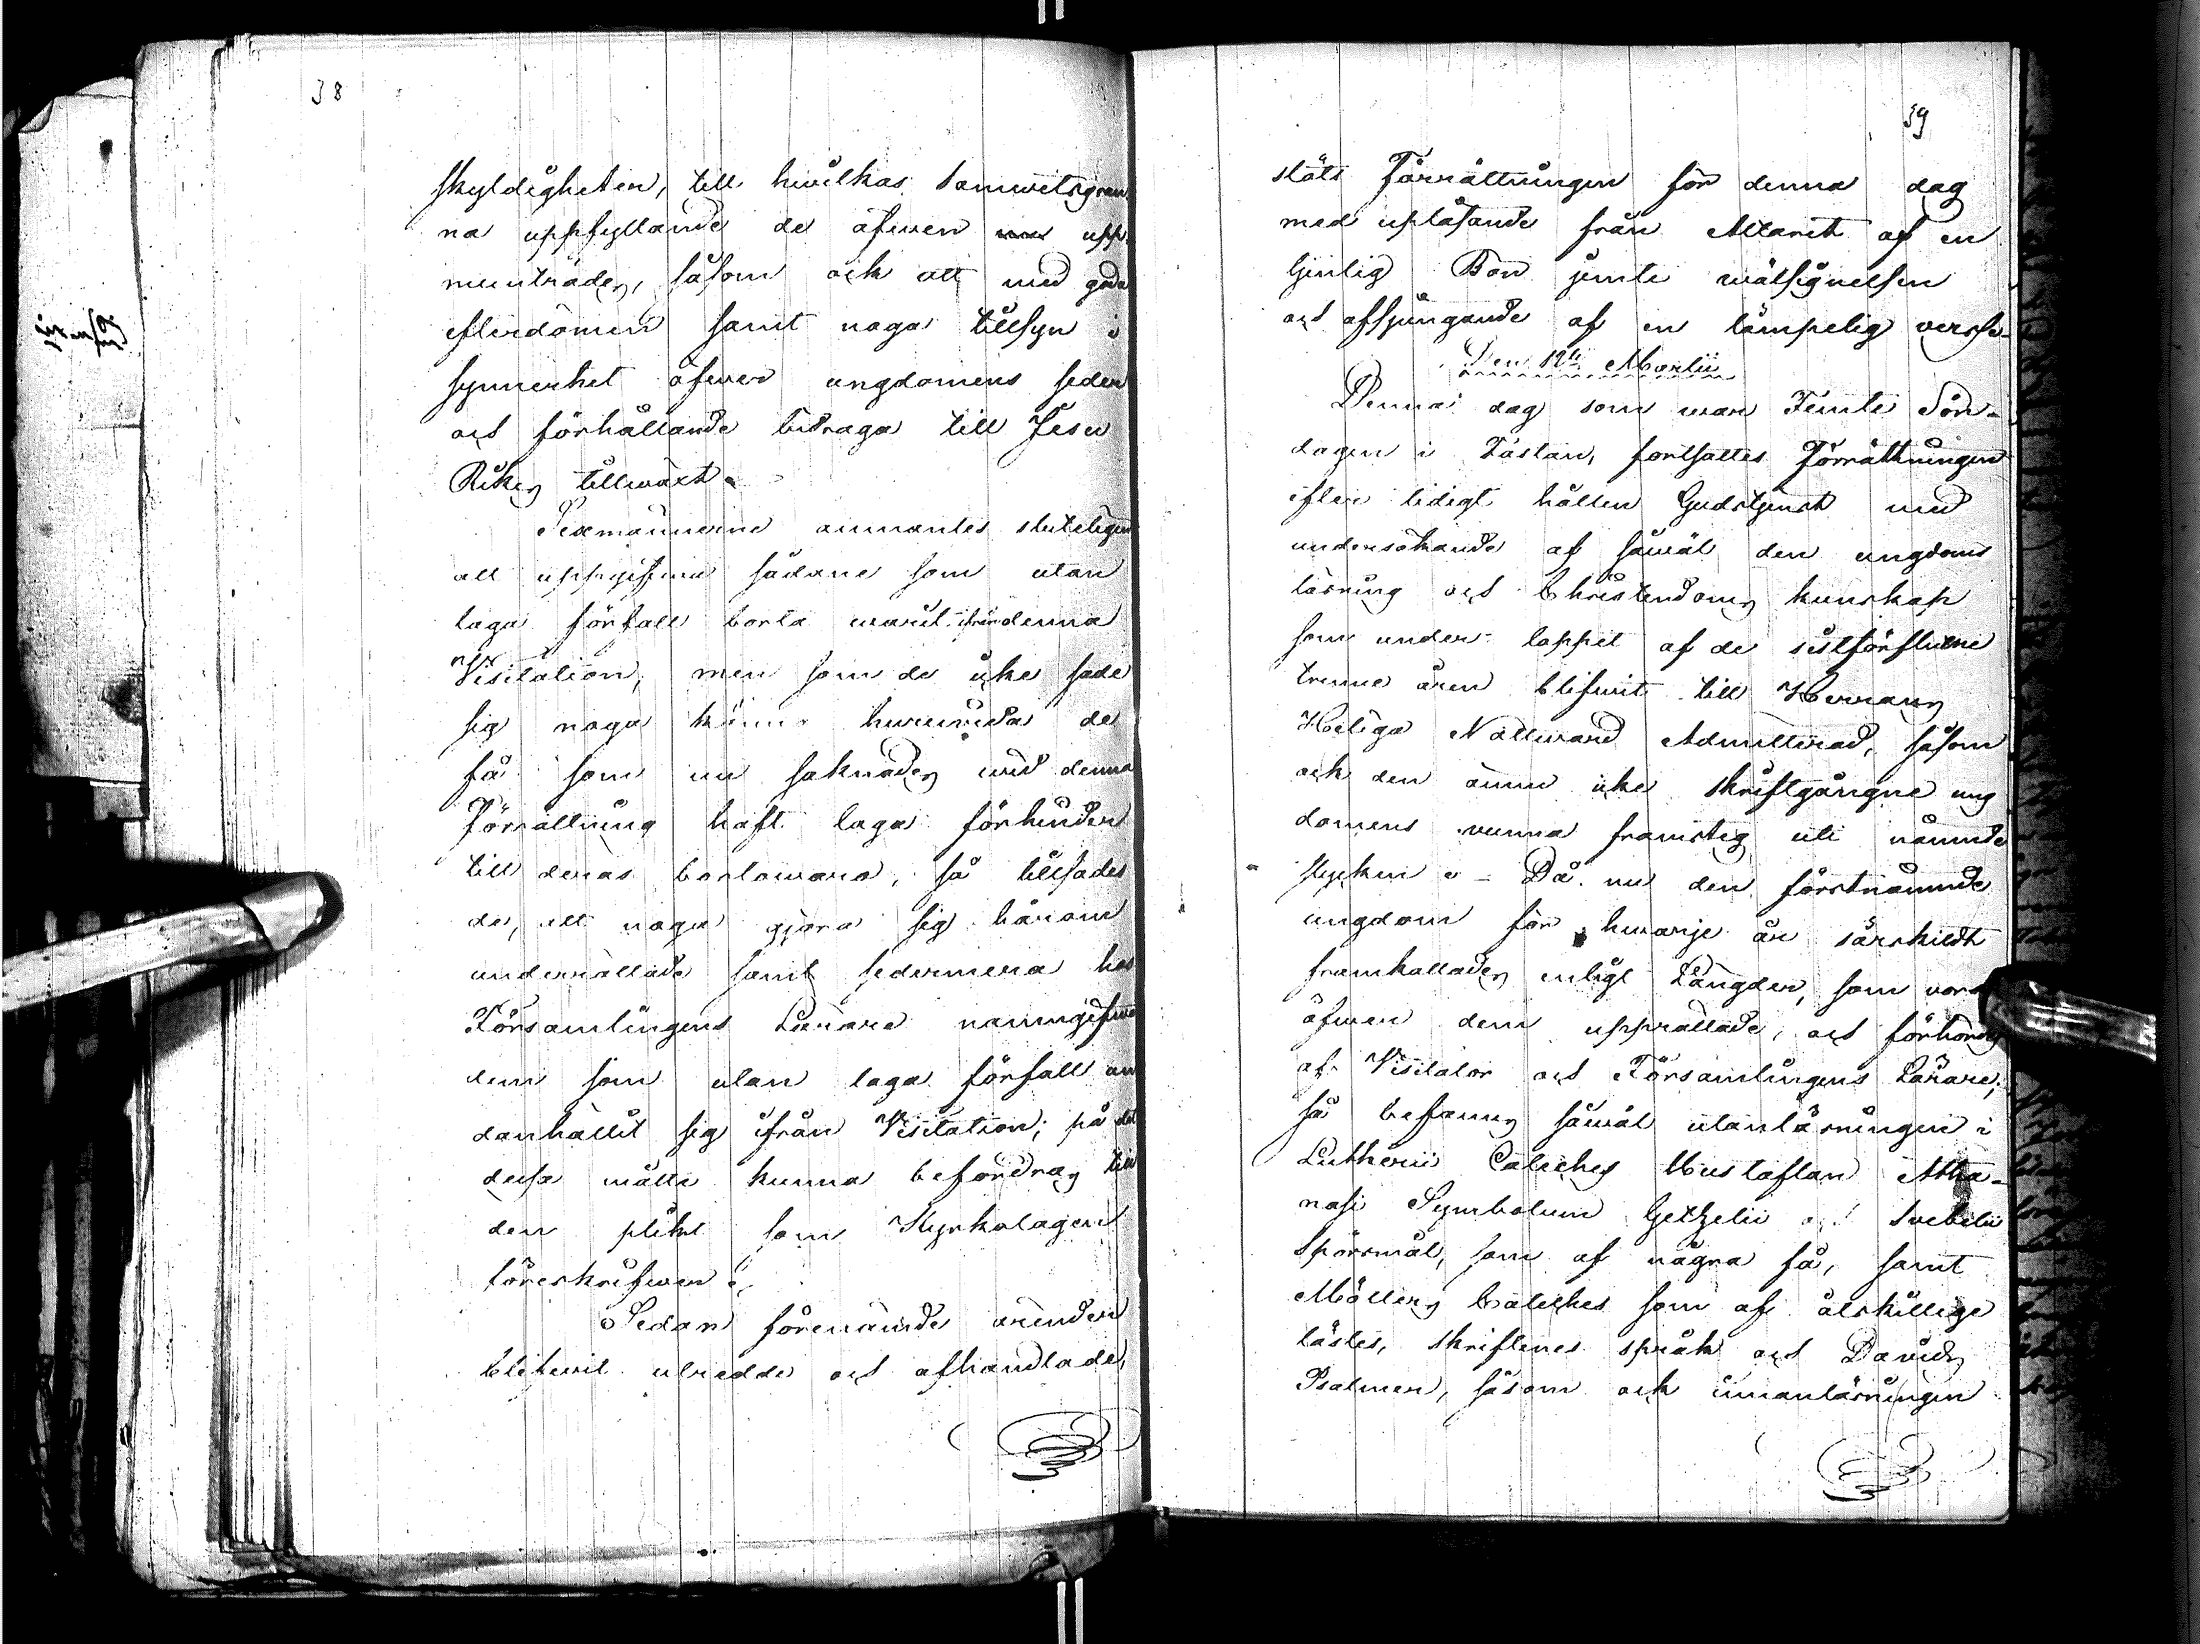 38
skyldigheten, till hwilkas samwetsgran
na uppfyllande de äfwen upp
muntrades, såsom ock att med goda
efterdömen samt noga tillsyn i
synnerhet öfwer ungdomens seder
och förhållande bidraga till Jesu
Rikes tillwäxt.
Sexmännerne anmantes sluteligen
att uppgifwa sådane som utan
laga förfall borta warit ifrån denna
Visitation, men som de icke sade
sig noga känna huruwida de
få som nu saknades wid denna
Förrättning haft laga förhinder
till deras bortowaro, så tillsades
de, att noga gjöra sig härom
underrättade samt sedermera hos
Församlingens Lärare namngifwa
dem som utan laga förfall un
danhållit sig ifrån Visitation; på det
dessa måtte kunna befordras till
den plikt som Kyrkolagen
föreskrifwer.
Sedan förenämde ärender
blifwit utredde och afhandlade,
39
slöts Förrättningen för denna dag
med upläsande från Altaret af en
tjenlig Bön jemte wälsignelsen
och afsjungande af en lämpelig verse.
Den 12te Martii
Denna dag som war Femte Sön-
dagen i Fastan, fortsattes Förrättningen
efter tidigt hållen Gudstjenst med
undersökande af såwäl den ungdoms
läsning och Christendoms kunskap
som under loppet af de sistförflutne
trenne åren blifwit till Herrans
Heliga Nattward Admitterad, såsom
ock den ännu icke skriftgångne ung
domens wunna framsteg uti nämnde
stycken. – Då nu den förstnämnde
ungdom för hwarje år särskildt
framkallades enligt Längder, som voro
öfwer dem upprättade, och förhördes
af Visitator och Församlingens Lärare,
så befanns såwäl utanläsningen i
Lutherii Cateches Hustaflan Atha-
nasi Symbolum Getzelii och Svebilii
Spörsmål, som af några få, samt
Möllers Cateches som af åtskillige
lästes, skriftenes språk och Davids
Psalmer, såsom ock innanläsningen